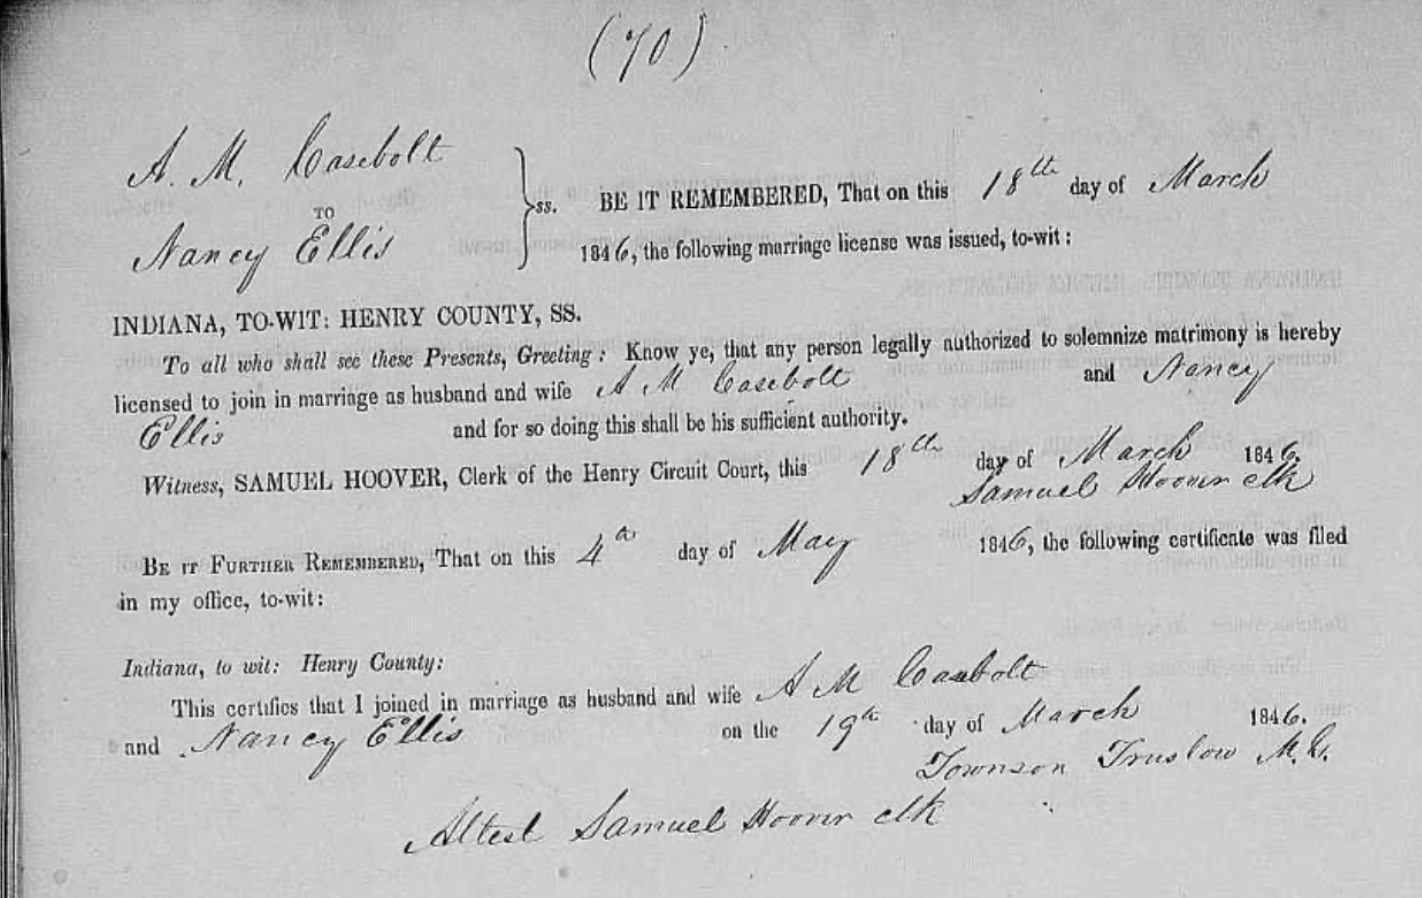 (70)
A. M. Casebolt
TO
Nancy Ellis
} ss. BE IT REMEMBERED, That on this 18th day of March
1846, the following marriage license was issued, to-wit:
INDIANA, TO-WIT: HENRY COUNTY, SS.
To all who shall see these Presents, Greeting: Know ye, that any person legally authorized to solemnize matrimony is hereby
licensed to join in marriage as husband and wife A M Casebolt and Nancy
Ellis and for so doing this shall be his sufficient authority.
Witness, SAMUEL HOOVER, Clerk of the Henry Circuit Court, this 18th day of March 1846.
Samuel Hoover clk
BE IT FURTHER REMEMBERED, That on this 4th day of May 1846, the following certificate was filed
in my office, to-wit:
Indiana, to wit: Henry County:
This certifies that I joined in marriage as husband and wife A M Casebolt
and Nancy Ellis on the 19th day of March 1846.
Townson Truslow M.G.
Attest Samuel Hoover clk